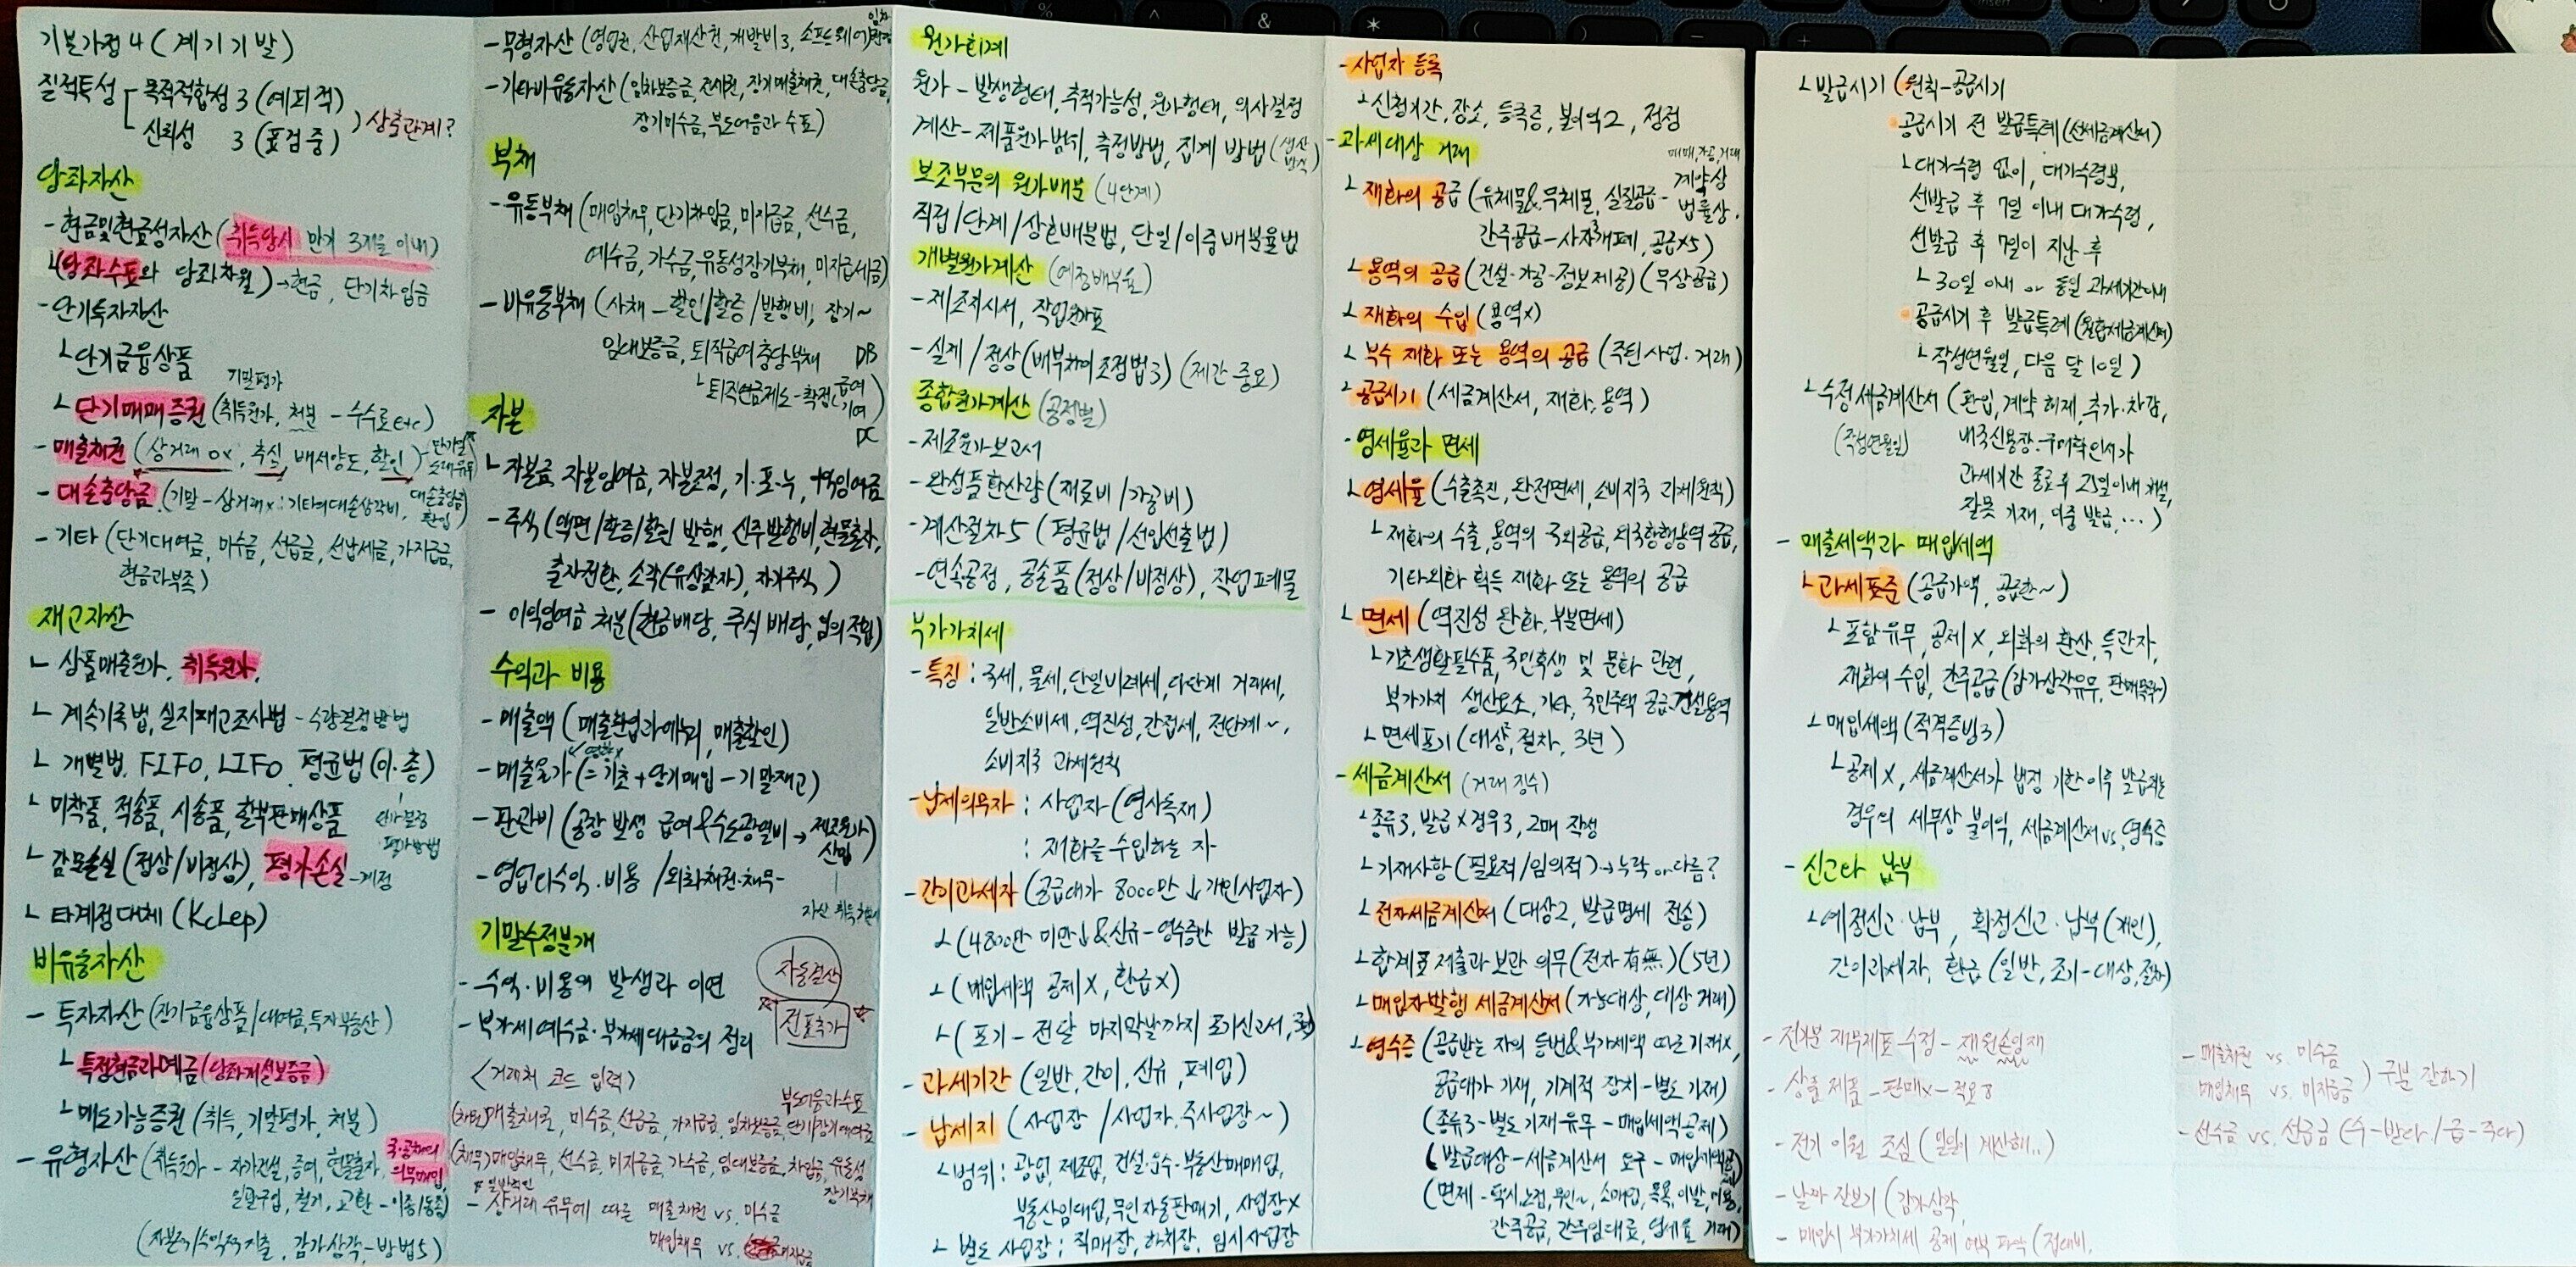 기본가정 4 (계기기발)
질적특성 목적적합성 3 (예피적)
신뢰성 3 (표검중) ) 상충관계?
당좌자산
- 현금및현금성자산 (취득당시 만기 3개월 이내)
ㄴ(당좌수표와 당좌차월) → 현금, 단기차입금
- 단기투자자산
ㄴ 단기금융상품
기말평가
ㄴ 단기매매증권 (취득원가, 처분 - 수수료etc)
- 매출채권 (상거래 ox, 추심, 배서양도, 할인)
- 대손충당금 (기말 - 상거래x : 기타의대손상각비, 대손충당금환입)
- 기타 (단기대여금, 미수금, 선급금, 선납세금, 가지급금,
현금과부족)
재고자산
ㄴ 상품매출원가, 취득원가,
ㄴ 계속기록법, 실지재고조사법 - 수량결정방법
ㄴ 개별법, FIFO, LIFO, 평균법 (이·총)
ㄴ 미착품, 적송품, 시송품, 할부판매상품
ㄴ 감모손실 (정상/비정상), 평가손실 - 계정
ㄴ 타계정대체 (KcLep)
비유동자산
- 투자자산 (장기금융상품/대여금, 투자부동산)
ㄴ 특정현금과예금 (당좌개설보증금)
ㄴ 매도가능증권 (취득, 기말평가, 처분)
- 유형자산 (취득원가 - 자가건설, 증여, 현물출자, 국·공채의 의무매입,
일괄구입, 철거, 교환 - 이종/동종)
(자본적/수익적 지출, 감가상각 - 방법5)
- 무형자산 (영업권, 산업재산권, 개발비3, 소프트웨어)
- 기타비유동자산 (임차보증금, 전세권, 장기매출채권, 대손충당금,
장기미수금, 부도어음과 수표)
부채
- 유동부채 (매입채무, 단기차입금, 미지급금, 선수금,
예수금, 가수금, 유동성장기부채, 미지급세금)
- 비유동부채 (사채 - 할인/할증/발행비, 장기~
임대보증금, 퇴직급여충당부채
DB
ㄴ 퇴직연금제도 - 확정 (급여
기여)
DC
자본
ㄴ 자본금, 자본잉여금, 자본조정, 기·포·누, 이익잉여금
- 주식 (액면/할증/할인 발행, 신주발행비, 현물출자,
출자전환, 소각(유상감자), 자기주식)
- 이익잉여금 처분 (현금배당, 주식배당, 임의적립)
수익과 비용
- 매출액 (매출환입과에누리, 매출할인)
- 매출원가 (= 기초 + 당기매입 - 기말재고)
- 판관비 (공장 발생 급여&수도광열비 → 제조원가)
- 영업외수익·비용 / 외화채권·채무 -
기말수정분개
- 수익·비용의 발생과 이연
자동결산
- 부가세예수금·부가세대급금의 정리
전표추가
<거래처 코드 입력>
부도어음과수표
(채권) 매출채권, 미수금, 선급금, 가지급금, 임차보증금, 단기/장기대여금
(채무) 매입채무, 선수금, 미지급금, 가수금, 임대보증금, 차입금, 유동성
장기부채
일반적인
- 상거래 유무에 따른 매출채권 vs. 미수금
매입채무 vs. 미지급금
원가회계
원가 - 발생형태, 추적가능성, 원가형태, 의사결정
계산 - 제품원가범위, 측정방법, 집계 방법 (생산방식)
보조부문의 원가배분 (4단계)
직접/단계/상호배분법, 단일/이중배분율법
개별원가계산 (예정배부율)
- 제조지시서, 작업원가표
- 실제/정상 (배부차이조정법3) (제간 중요)
종합원가계산 (공정별)
- 제조원가보고서
- 완성품환산량 (재료비/가공비)
- 계산절차5 (평균법/선입선출법)
- 연속공정, 공손품(정상/비정상), 작업폐물
부가가치세
- 특징 : 국세, 물세, 단일비례세, 다단계 거래세,
일반소비세, 역진성, 간접세, 전단계~,
소비지국 과세원칙
- 납세의무자 : 사업자 (영사독재)
: 재화를 수입하는 자
- 간이과세자 (공급대가 8000만↓ 개인사업자)
ㄴ (4800만 미만↓&신규 - 영수증만 발급 가능)
ㄴ (매입세액 공제X, 환급X)
ㄴ (포기 - 전달 마지막날까지 포기신고서, 3년)
- 과세기간 (일반, 간이, 신규, 폐업)
- 납세지 (사업장 / 사업자, 주사업장~)
ㄴ 범위 : 광업, 제조업, 건설·운수·부동산매매업,
부동산임대업, 무인자동판매기, 사업장X
ㄴ 별도 사업장 : 직매장, 하치장, 임시사업장
- 사업자 등록
ㄴ 신청기간, 장소, 등록증, 불이익2, 정정
- 과세대상 거래
ㄴ 재화의 공급 (유체물&무체물, 실질공급 - 계약상·법률상,
간주공급 - 사자개폐, 공급X5)
ㄴ 용역의 공급 (건설·가공·정보제공) (무상공급)
ㄴ 재화의 수입 (용역X)
ㄴ 복수 재화 또는 용역의 공급 (주된 사업·거래)
ㄴ 공급시기 (세금계산서, 재화, 용역)
- 영세율과 면세
ㄴ 영세율 (수출촉진, 완전면세, 소비지국 과세원칙)
ㄴ 재화의 수출, 용역의 국외공급, 외국항행용역 공급,
기타외화 획득 재화 또는 용역의 공급
ㄴ 면세 (역진성 완화, 부분면세)
ㄴ 기초생활필수품, 국민후생 및 문화 관련,
부가가치 생산요소, 기타, 국민주택 공급·건설용역
ㄴ 면세포기 (대상, 절차, 3년)
- 세금계산서 (거래 징수)
ㄴ 종류3, 발급X경우3, 2매 작성
ㄴ 기재사항 (필요적/임의적) → 누락 or 다름?
ㄴ 전자세금계산서 (대상2, 발급명세 전송)
ㄴ 합계표 제출과 보관 의무 (전자 有無) (5년)
ㄴ 매입자발행 세금계산서 (가능대상, 대상 거래)
ㄴ 영수증 (공급받는 자의 등번&부가세액 따로 기재X,
공급대가 기재, 기계적 장치 - 별도 기재)
(종류3 - 별도 기재 유무 - 매입세액공제)
(발급대상 - 세금계산서 요구 - 매입세액)
(면제 - 택시, 노점, 무인~, 소매업, 목욕, 이발, 미용,
간주공급, 간주임대료, 영세율 거래)
ㄴ 발급시기 (원칙 - 공급시기
공급시기 전 발급특례 (선세금계산서)
ㄴ 대가수령 없이, 대가수령분,
선발급 후 7일 이내 대가수령,
선발급 후 7일이 지난 후
ㄴ 30일 이내 or 동일 과세기간이내
공급시기 후 발급특례 (월합세금계산서)
ㄴ 작성연월일, 다음 달 10일)
ㄴ 수정세금계산서 (환입, 계약 해제, 추가·차감,
(작성연월일) 내국신용장·구매확인서가
과세기간 종료 후 25일이내 개설,
잘못 기재, 이중 발급, …)
- 매출세액과 매입세액
ㄴ 과세표준 (공급가액, 공급한~)
ㄴ 포함유무, 공제X, 외화의 환산, 특관자,
재화의 수입, 간주공급 (감가상각유무, 판매목적)
ㄴ 매입세액 (적격증빙3)
ㄴ 공제X, 세금계산서가 법정 기한 이후 발급되는
경우의 세무상 불이익, 세금계산서 vs. 영수증
- 신고와 납부
ㄴ 예정신고·납부, 확정신고·납부 (개인),
간이과세자, 환급 (일반, 조기 - 대상, 절차)
- 전기분 재무제표 수정 - 재원손잉재
- 상품 제품 - 판매X - 적요8
- 전기 이월 조심 (일일이 계산해..)
- 날짜 잘보기 (감가상각,
- 매입시 부가가치세 공제 여부 파악 (접대비,
- 매출채권 vs. 미수금
매입채무 vs. 미지급금 ) 구분 잘하기
- 선수금 vs. 선급금 (수 - 받다 / 급 - 주다)